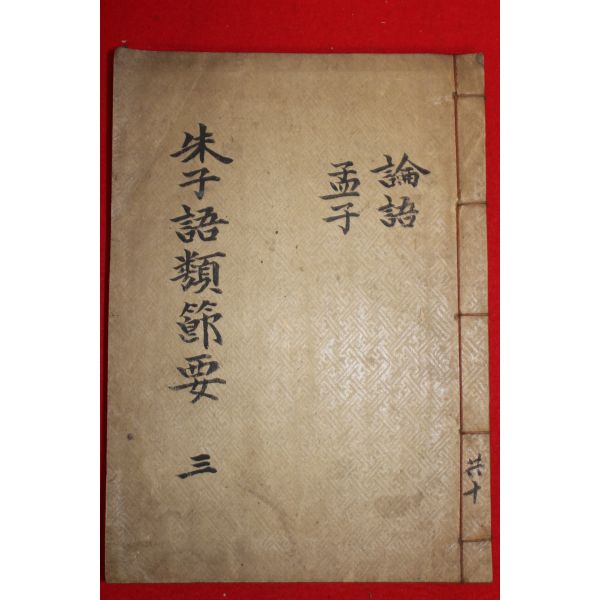 論語
孟子
朱子語類節要 三
共十